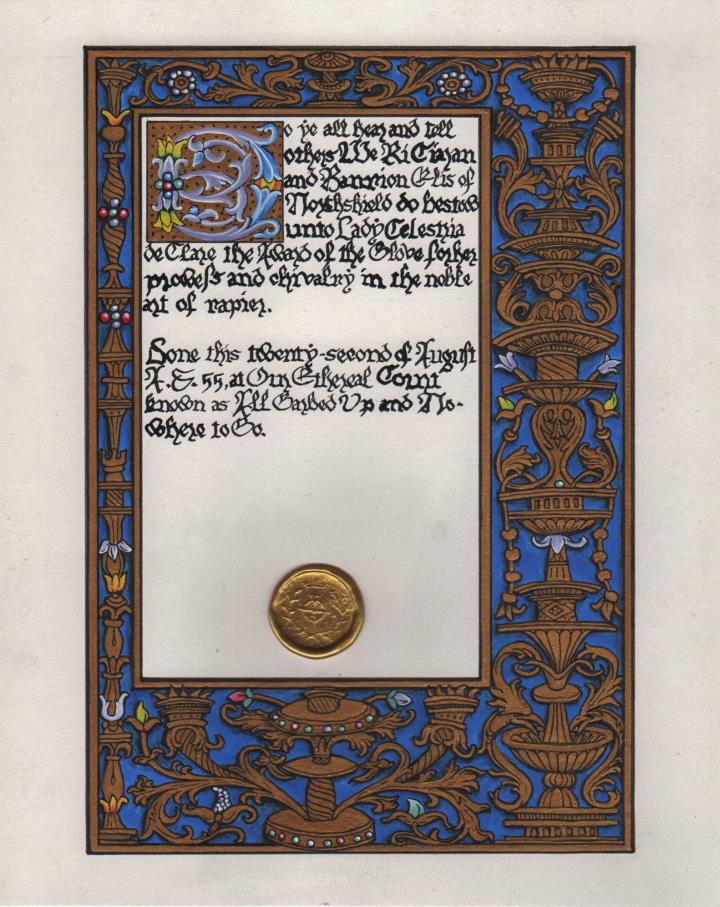 Do ye all hear and tell
others We Ri Ciaran
and Banrion Elis of
Northshield do bestow
unto Lady Celestria
de Clare the Award of the Glove for her
prowess and chivalry in the noble
art of rapier.
Done this twenty-second of August
A.S. 55, at Our Ethereal Court
known as All Garbed Up and No-
where to Go.